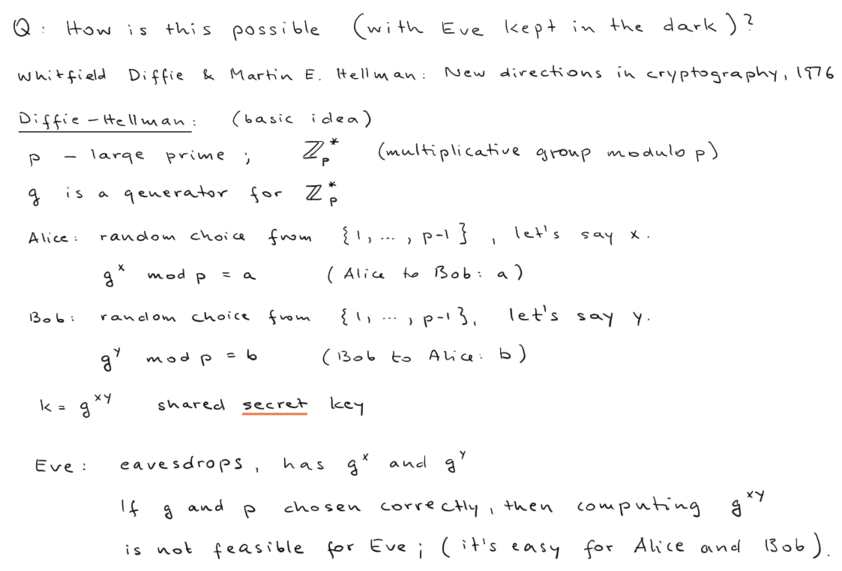 Q: How is this possible (with Eve kept in the dark)?
Whitfield Diffie & Martin E. Hellman: New directions in cryptography, 1976
Diffie-Hellman: (basic idea)
p - large prime; ℤₚ* (multiplicative group modulo p)
g is a generator for ℤₚ*
Alice: random choice from {1, ..., p-1}, let's say x.
gˣ mod p = a (Alice to Bob: a)
Bob: random choice from {1, ..., p-1}, let's say y.
gʸ mod p = b (Bob to Alice: b)
k = gˣʸ shared secret key
Eve: eavesdrops, has gˣ and gʸ
If g and p chosen correctly, then computing gˣʸ
is not feasible for Eve; (it's easy for Alice and Bob).